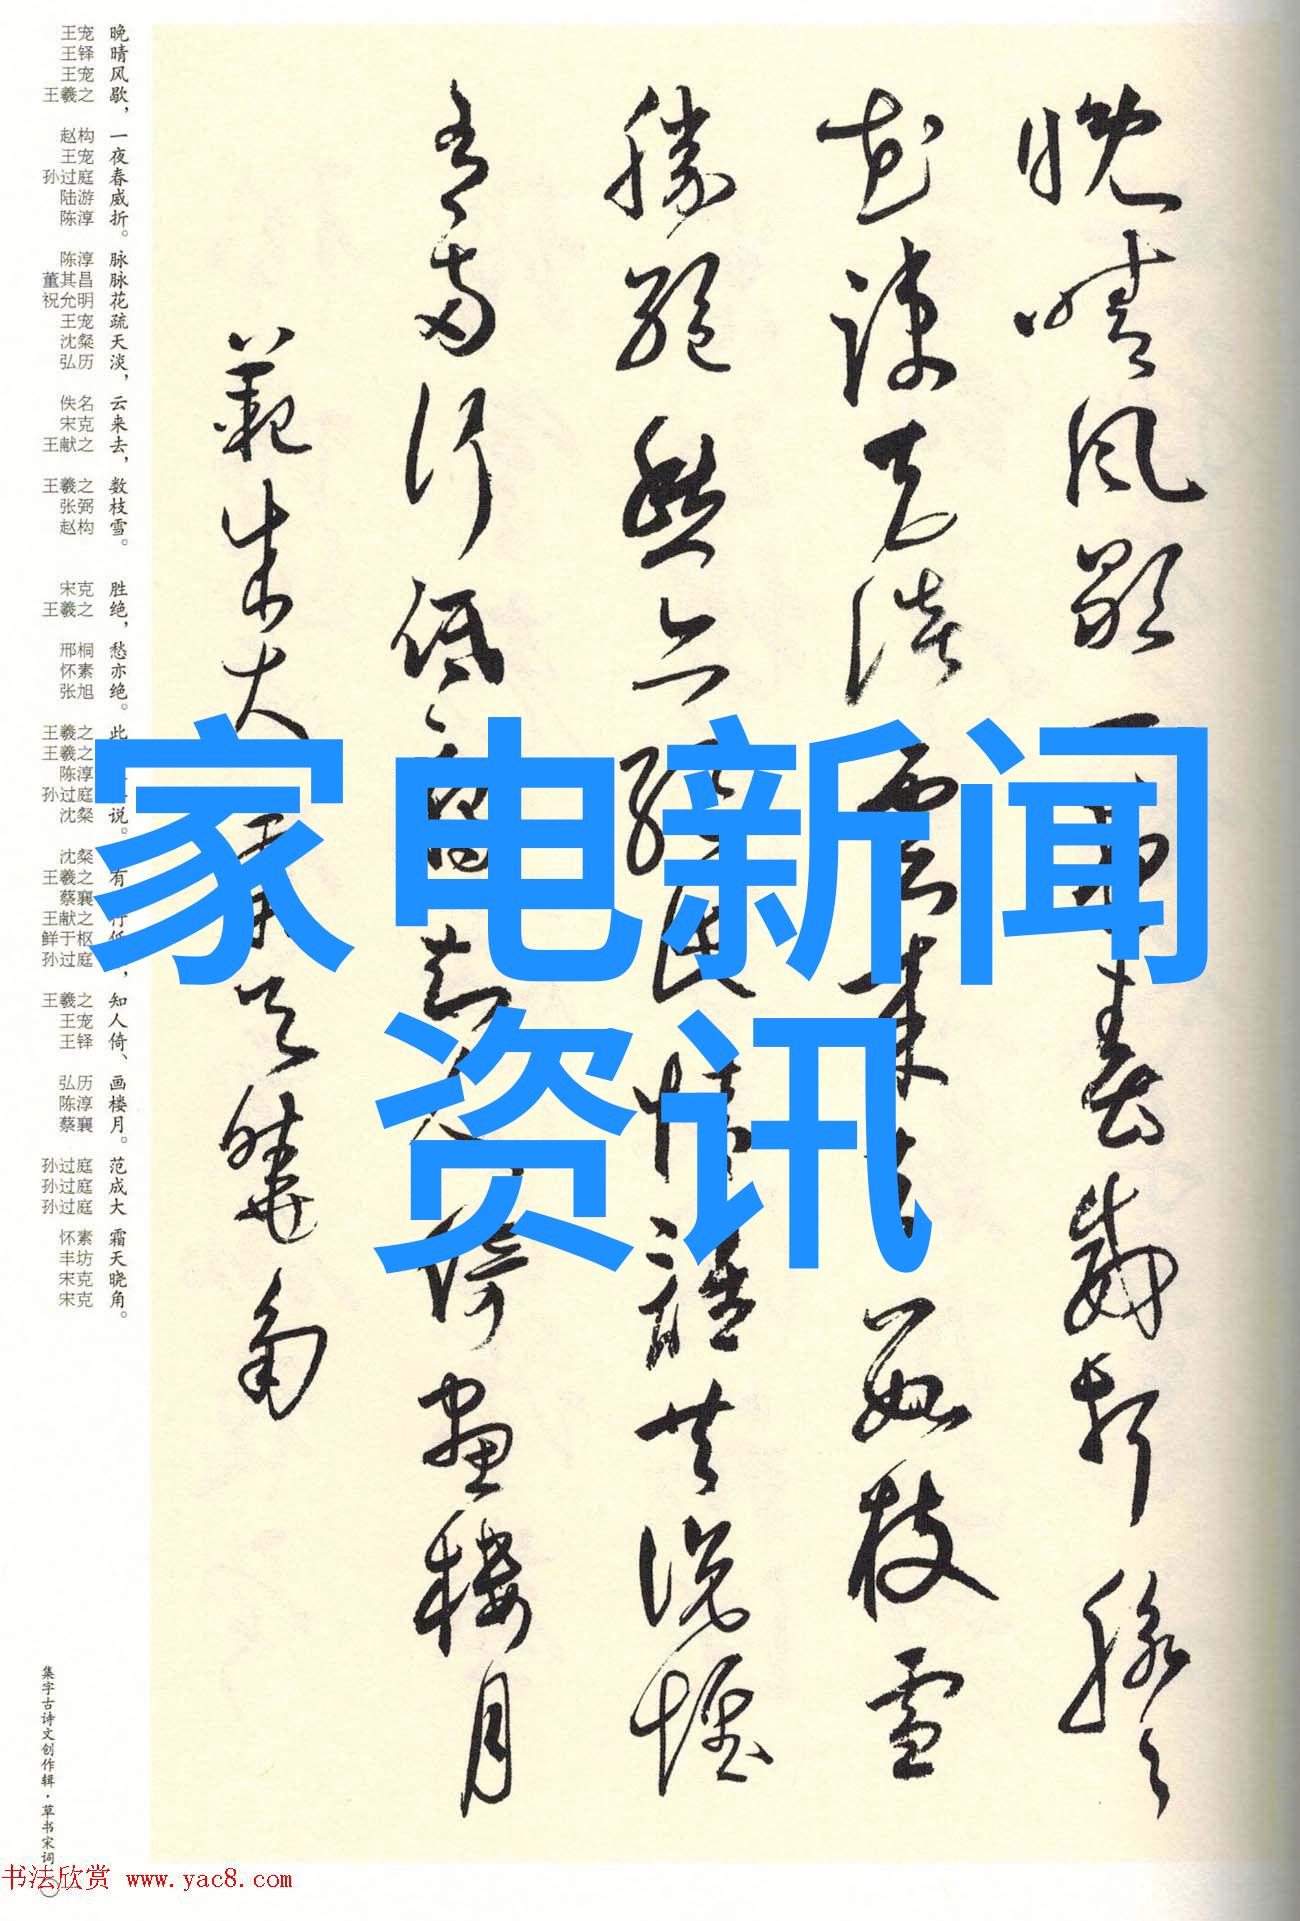 晚晴風歇一夜春威折脈々
花疎天淡雲來去數枝雪
勝絕愁亦絕此情誰共說惟
有兩行低雁知人倚畫樓月
範成大霜天曉角
家电新闻
资讯
晚晴风歇，一夜春威折。脉脉花疏天淡，云来去，数枝雪。
胜绝，愁亦绝。此说。有行低，知人倚、画楼月。范成大霜天晓角。
王宠 王铎 王宠 王羲之 赵构 王宠 孙过庭 陆游 陈淳 陈淳 董其昌 祝允明 王宠 沈粲 弘历 佚名 宋克 王献之 王羲之 张弼 赵构
宋克 王羲之 邢桐 怀素 张旭 王羲之 王羲之 陈淳 孙过庭 沈粲 沈粲 王羲之 蔡襄 王献之 鲜于枢 孙过庭 王羲之 王宠 王铎 弘历 陈淳 蔡襄 孙过庭 孙过庭 孙过庭 怀素 丰坊 宋克 宋克
集字古诗文创作辑·草书宋词
书法欣赏 www.yac8.com